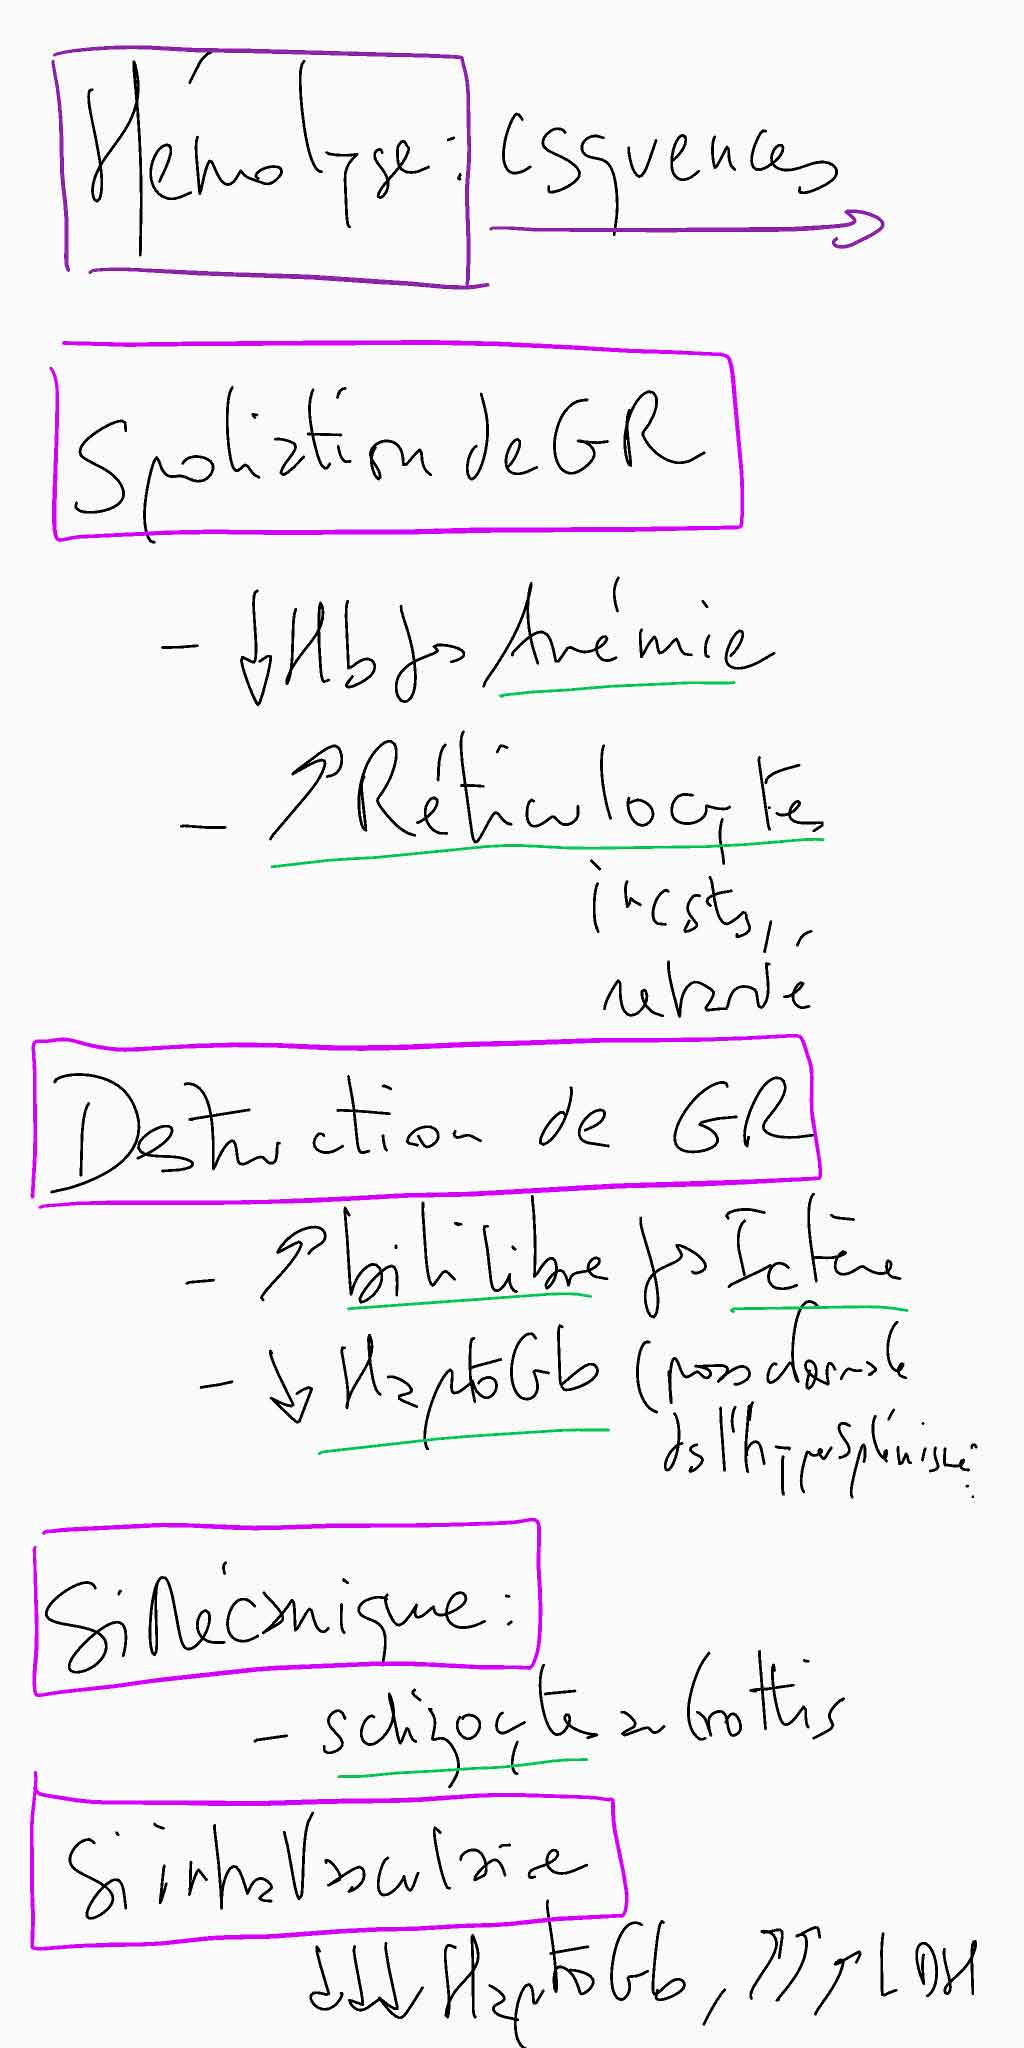 Hémolyse : csquences
Spoliation de GR
- ↓ Hb fs Anémie
- ↗ Réticulocytes
incsts,
retardé
Destruction de GR
- ↗ bili libre fs Ictère
- ↓ HaptoGb (poss
ds l'hypersplénisme
Si Mécanique :
- schizocytes au frottis
Si intraVasculaire
↓↓↓ HaptoGb, ↑↑↑ LDH